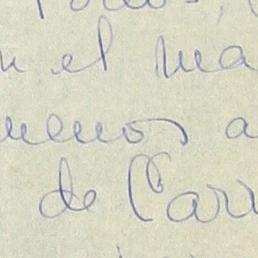 n el ma
menos a
de Carr